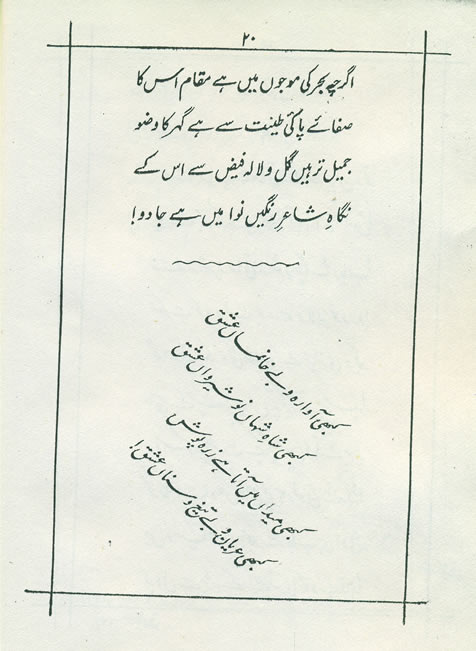 ۲۰
اگرچہ بحر کی موجوں میں ہے مقام اس کا
صفائے پاکیِ طینت سے ہے گہر کا وضو
جمیل تر ہیں گل و لالہ فیض سے اس کے
نگاہِ شاعرِ رنگیں نوا میں ہے جادو!
کبھی آوارہ و بے خانماں عشق
کبھی شاہِ شہاں نوشیرواں عشق
کبھی میداں میں آتا ہے زرہ پوش
کبھی عریان و بے تیغ و سناں عشق!